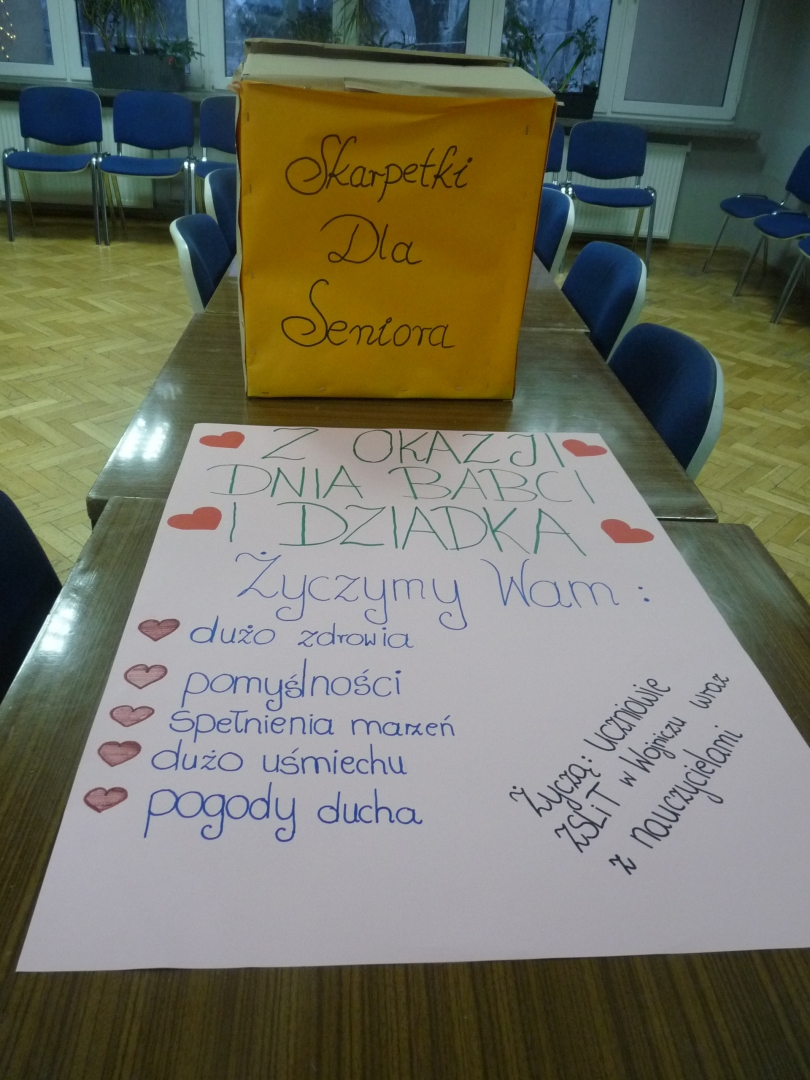 Skarpetki
Dla
Seniora
Z OKAZJI
DNIA BABCI
I DZIADKA
Życzymy Wam :
dużo zdrowia
pomyślności
spełnienia marzeń
dużo uśmiechu
pogody ducha
Życzą: Uczniowie
ZSLiT w Wojniczu wraz
z nauczycielami